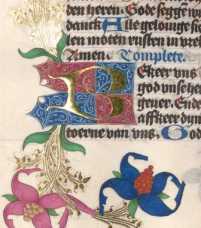 den heren. Gode segge wi
danck Alle gelouige siel
len moten rusten in vrede
Amen Complete.
Ekeer uns
god unse hei
gever. Ende
afkeer dijn
toerne van uns. God